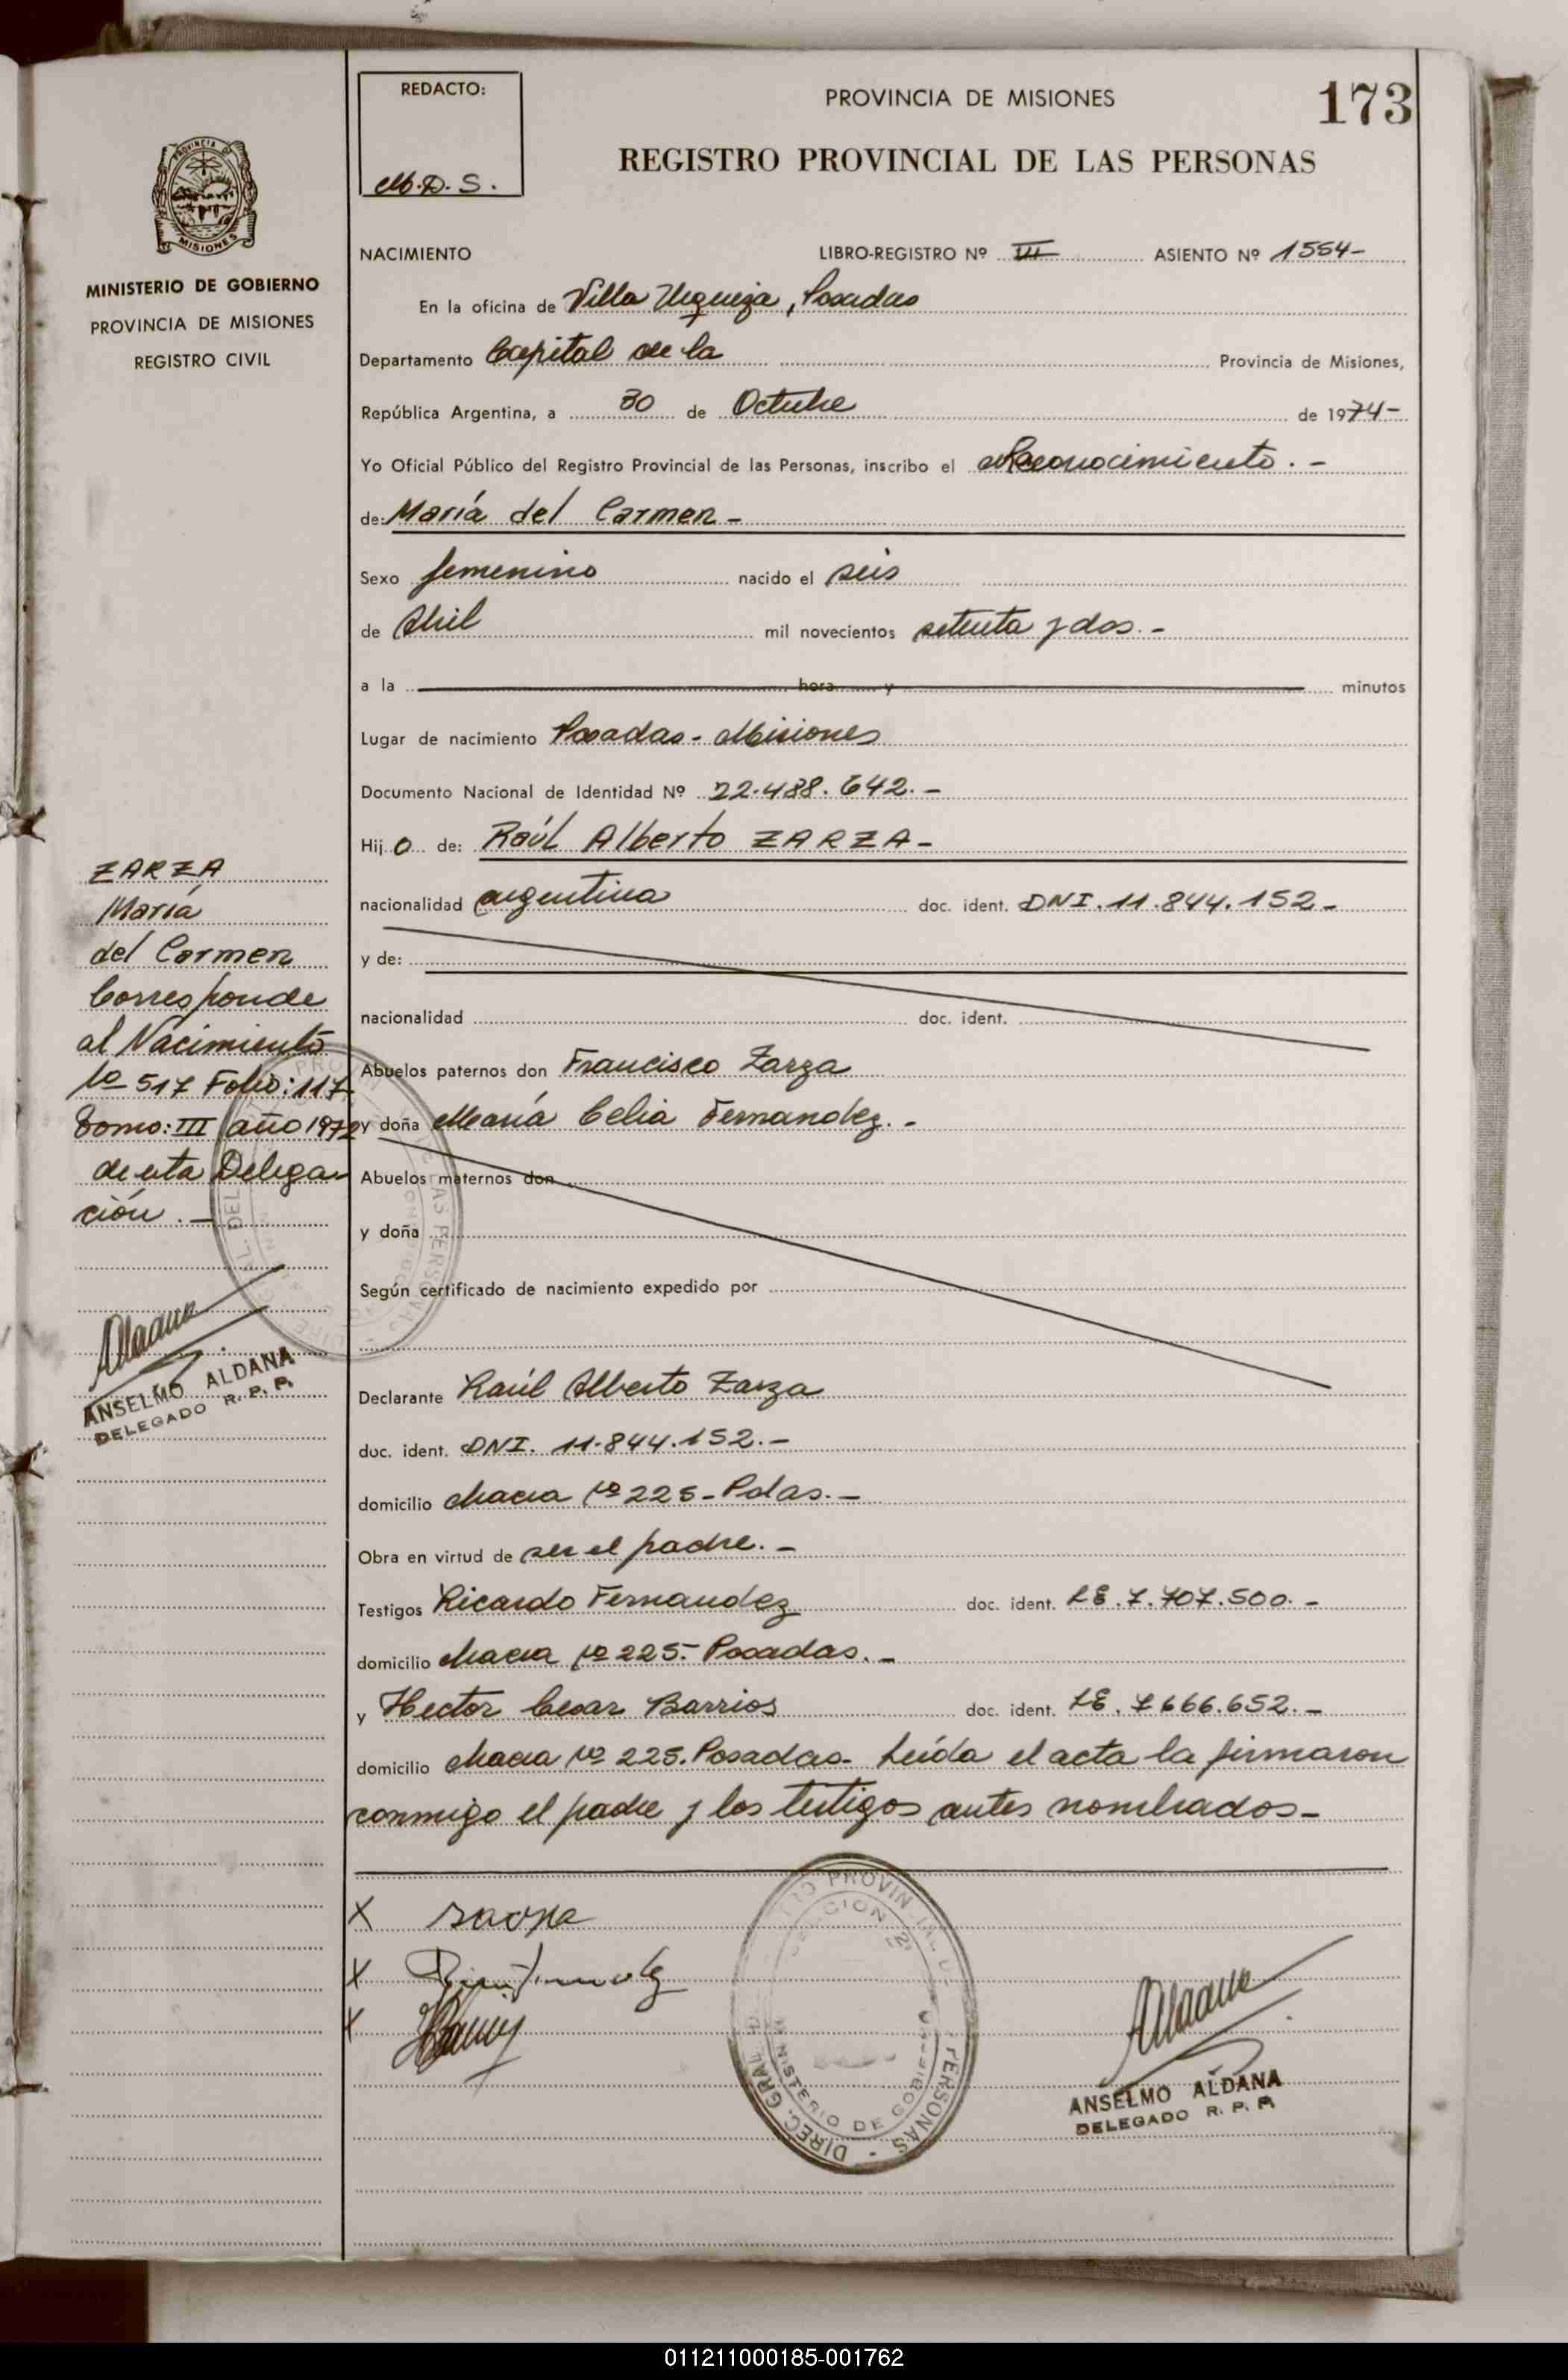 REDACTO:
M.D.S.
PROVINCIA DE MISIONES
173
REGISTRO PROVINCIAL DE LAS PERSONAS
PROVINCIA DE
MISIONES
MINISTERIO DE GOBIERNO
PROVINCIA DE MISIONES
REGISTRO CIVIL
NACIMIENTO LIBRO-REGISTRO Nº III ASIENTO Nº 1554-
En la oficina de Villa Urquiza, Posadas
Departamento Capital de la Provincia de Misiones,
República Argentina, a 30 de Octubre de 1974-
Yo Oficial Público del Registro Provincial de las Personas, inscribo el Reconocimiento.-
de: María del Carmen-
Sexo femenino nacido el seis
de Abril mil novecientos setenta y dos.-
a la hora y minutos
Lugar de nacimiento Posadas-Misiones
Documento Nacional de Identidad Nº 22.488.642.-
Hijo de: Raúl Alberto ZARZA-
nacionalidad argentina doc. ident. DNI.11.844.152-
y de:
nacionalidad doc. ident.
Abuelos paternos don Francisco Zarza
y doña María Celia Fernandez.-
Abuelos maternos don
y doña
Según certificado de nacimiento expedido por
Declarante Raúl Alberto Zarza
doc. ident. DNI. 11.844.152.-
domicilio Nº 225-Pdas.-
Obra en virtud de ser el padre.-
Testigos Ricardo Fernandez doc. ident. LE.7.707.500.-
domicilio Nº 225.-Posadas.-
y Hector Cesar Barrios doc. ident. LE.7666.652.-
domicilio Nº 225.Posadas- Leída el acta la firmaron
conmigo el padre y los testigos antes nombrados-
ZARZA
María
del Carmen
Corresponde
al Nacimiento
Nº 517 Folio:117
Tomo:III año 1972
de esta Delega-
ción.-
ANSELMO ALDANA
DELEGADO R. P. P.
X
X
X
PROVINCIAL DE PERSONAS - DIREC. GRAL
MINISTERIO DE GOBIERNO
ANSELMO ALDANA
DELEGADO R. P. P.
011211000185-001762